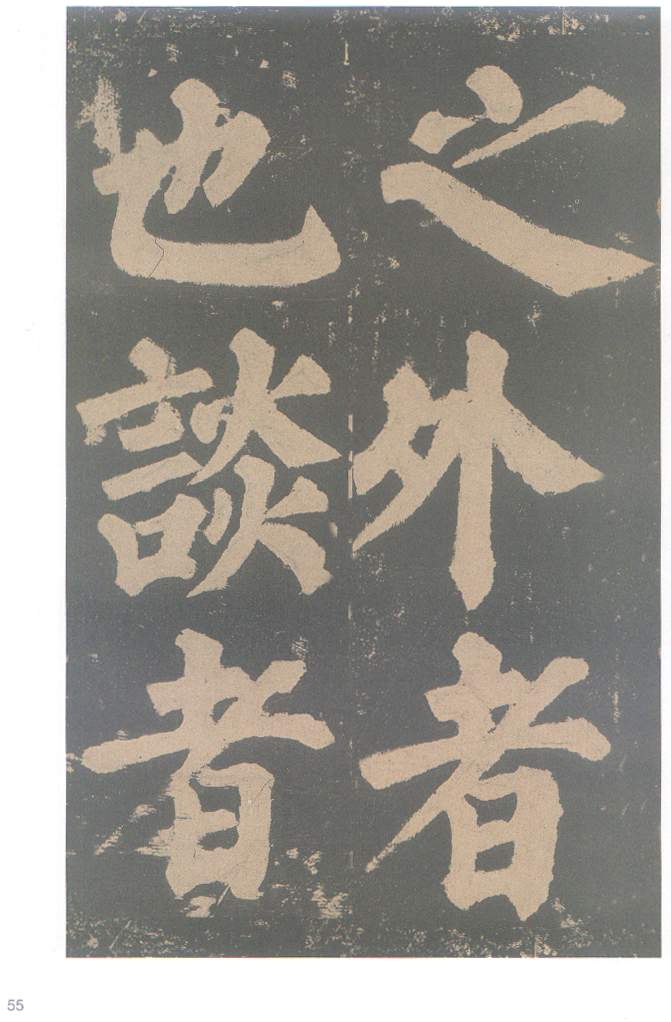 之外者
也談者
55